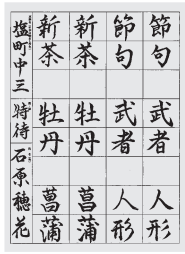 節句 武者 人形
節句 武者 人形
新茶 牡丹 菖蒲
新茶 牡丹 菖蒲
塩町中三 特待 石原穂花